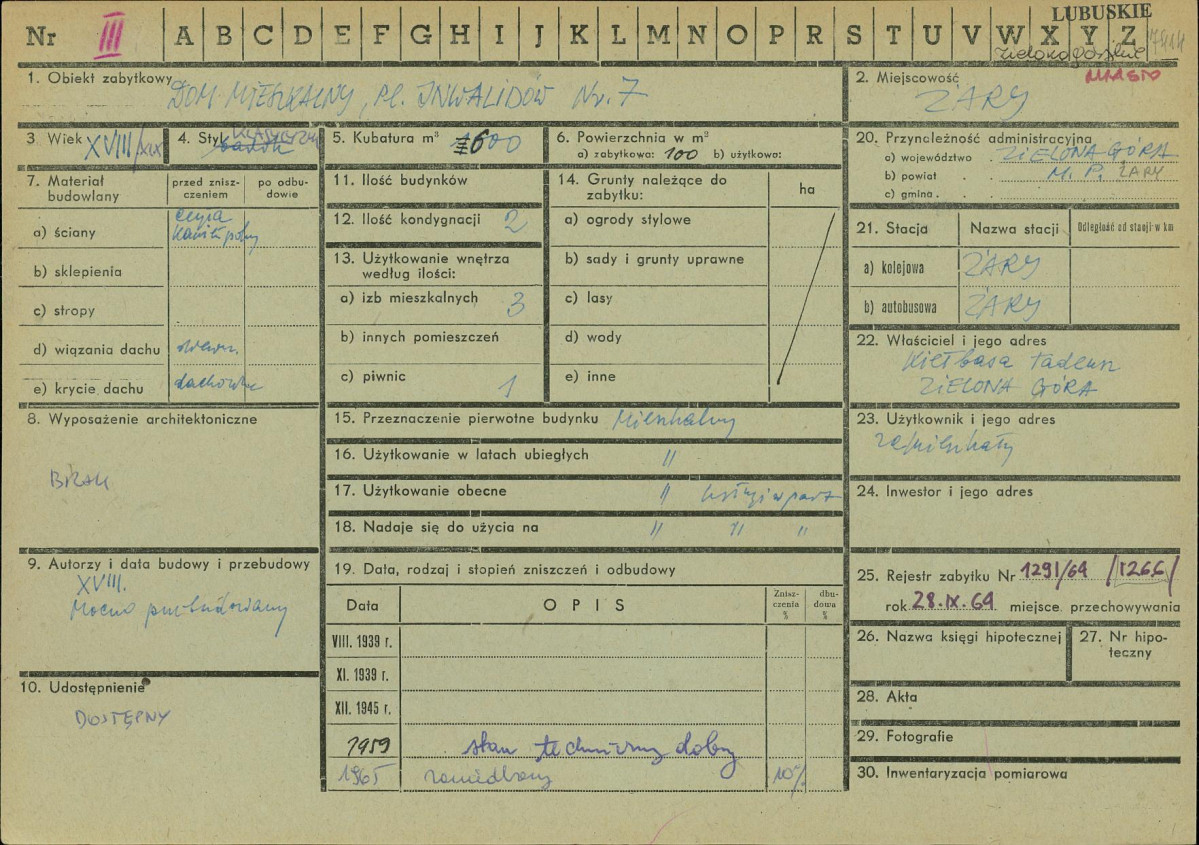 LUBUSKIE
Nr III A B C D E F G H I J K L M N O P R S T U V W X Y Z
1. Obiekt zabytkowy DOM MIESZKALNY, Pl. INWALIDÓW Nr. 7
2. Miejscowość MIASTO
ŻARY
3 Wiek XVIII/XIX
4. Styl
5. Kubatura m³ 1600
6. Powierzchnia w m²
a) zabytkowa: 100 b) użytkowa:
20. Przynależność administracyjna
a) województwo ZIELONA GÓRA
b) powiat M. P. ŻARY
c) gmina
7. Materiał budowlany
przed zniszczeniem
po odbudowie
a) ściany cegła
b) sklepienia
c) stropy
d) wiązania dachu drewn.
e) krycie dachu dachówka
11. Ilość budynków
12. Ilość kondygnacji 2
13. Użytkowanie wnętrza według ilości:
a) izb mieszkalnych 3
b) innych pomieszczeń
c) piwnic 1
14. Grunty należące do zabytku:
ha
a) ogrody stylowe
b) sady i grunty uprawne
c) lasy
d) wody
e) inne
21. Stacja
Nazwa stacji
Odległość od stacji w km
a) kolejowa ŻARY
b) autobusowa ŻARY
22. Właściciel i jego adres
Kiełbasa Tadeusz
ZIELONA GÓRA
8. Wyposażenie architektoniczne
BRAK
15. Przeznaczenie pierwotne budynku Mieszkalny
16. Użytkowanie w latach ubiegłych "
17. Użytkowanie obecne "
18. Nadaje się do użycia na " " "
23. Użytkownik i jego adres
zamieszkały
24. Inwestor i jego adres
9. Autorzy i data budowy i przebudowy
XVIII.
Mocno przebudowany
10. Udostępnienie
DOSTĘPNY
19. Data, rodzaj i stopień zniszczeń i odbudowy
Data
OPIS
Zniszczenia %
dbudowa %
VIII. 1939 r.
XI. 1939 r.
XII. 1945 r.
1959 stan techniczny dobry
1965 zaniedbany 10%
25. Rejestr zabytku Nr 1291/64 /1266/
rok 28.IX.64 miejsce przechowywania
26. Nazwa księgi hipotecznej
27. Nr hipoteczny
28. Akta
29. Fotografie
30. Inwentaryzacja pomiarowa